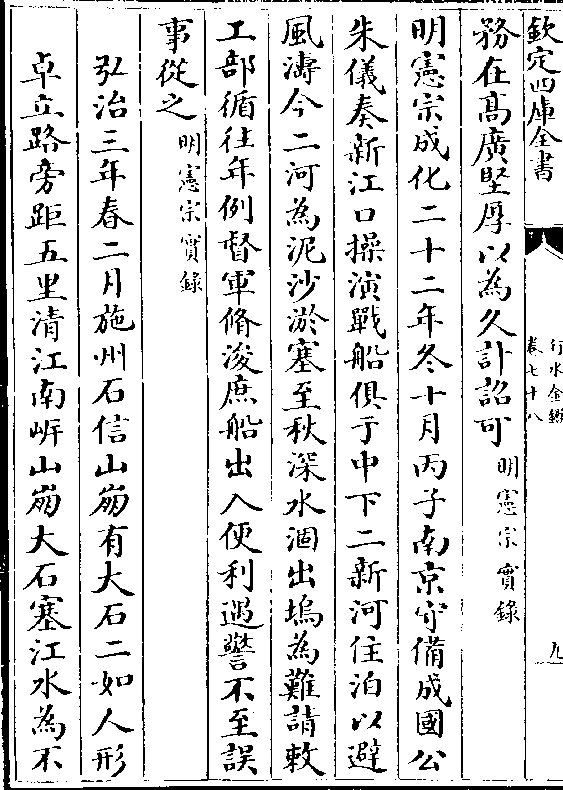 欽定四庫全書
行水金鑑
卷七十八
九
務在髙廣堅厚以為久計詔可明憲宗實錄
明憲宗成化二十二年冬十月丙子南京守備成國公
朱儀奏新江口操演戰船俱于中下二新河住泊以避
風濤今二河為泥沙淤塞至秋深水涸出塢為難請敕
工部循往年例督軍脩浚庶船出入便利遇警不至誤
事從之明憲宗實錄
弘治三年春二月施州石信山崩有大石二如人形
卓立路旁距五里清江南㟁山崩大石塞江水為不